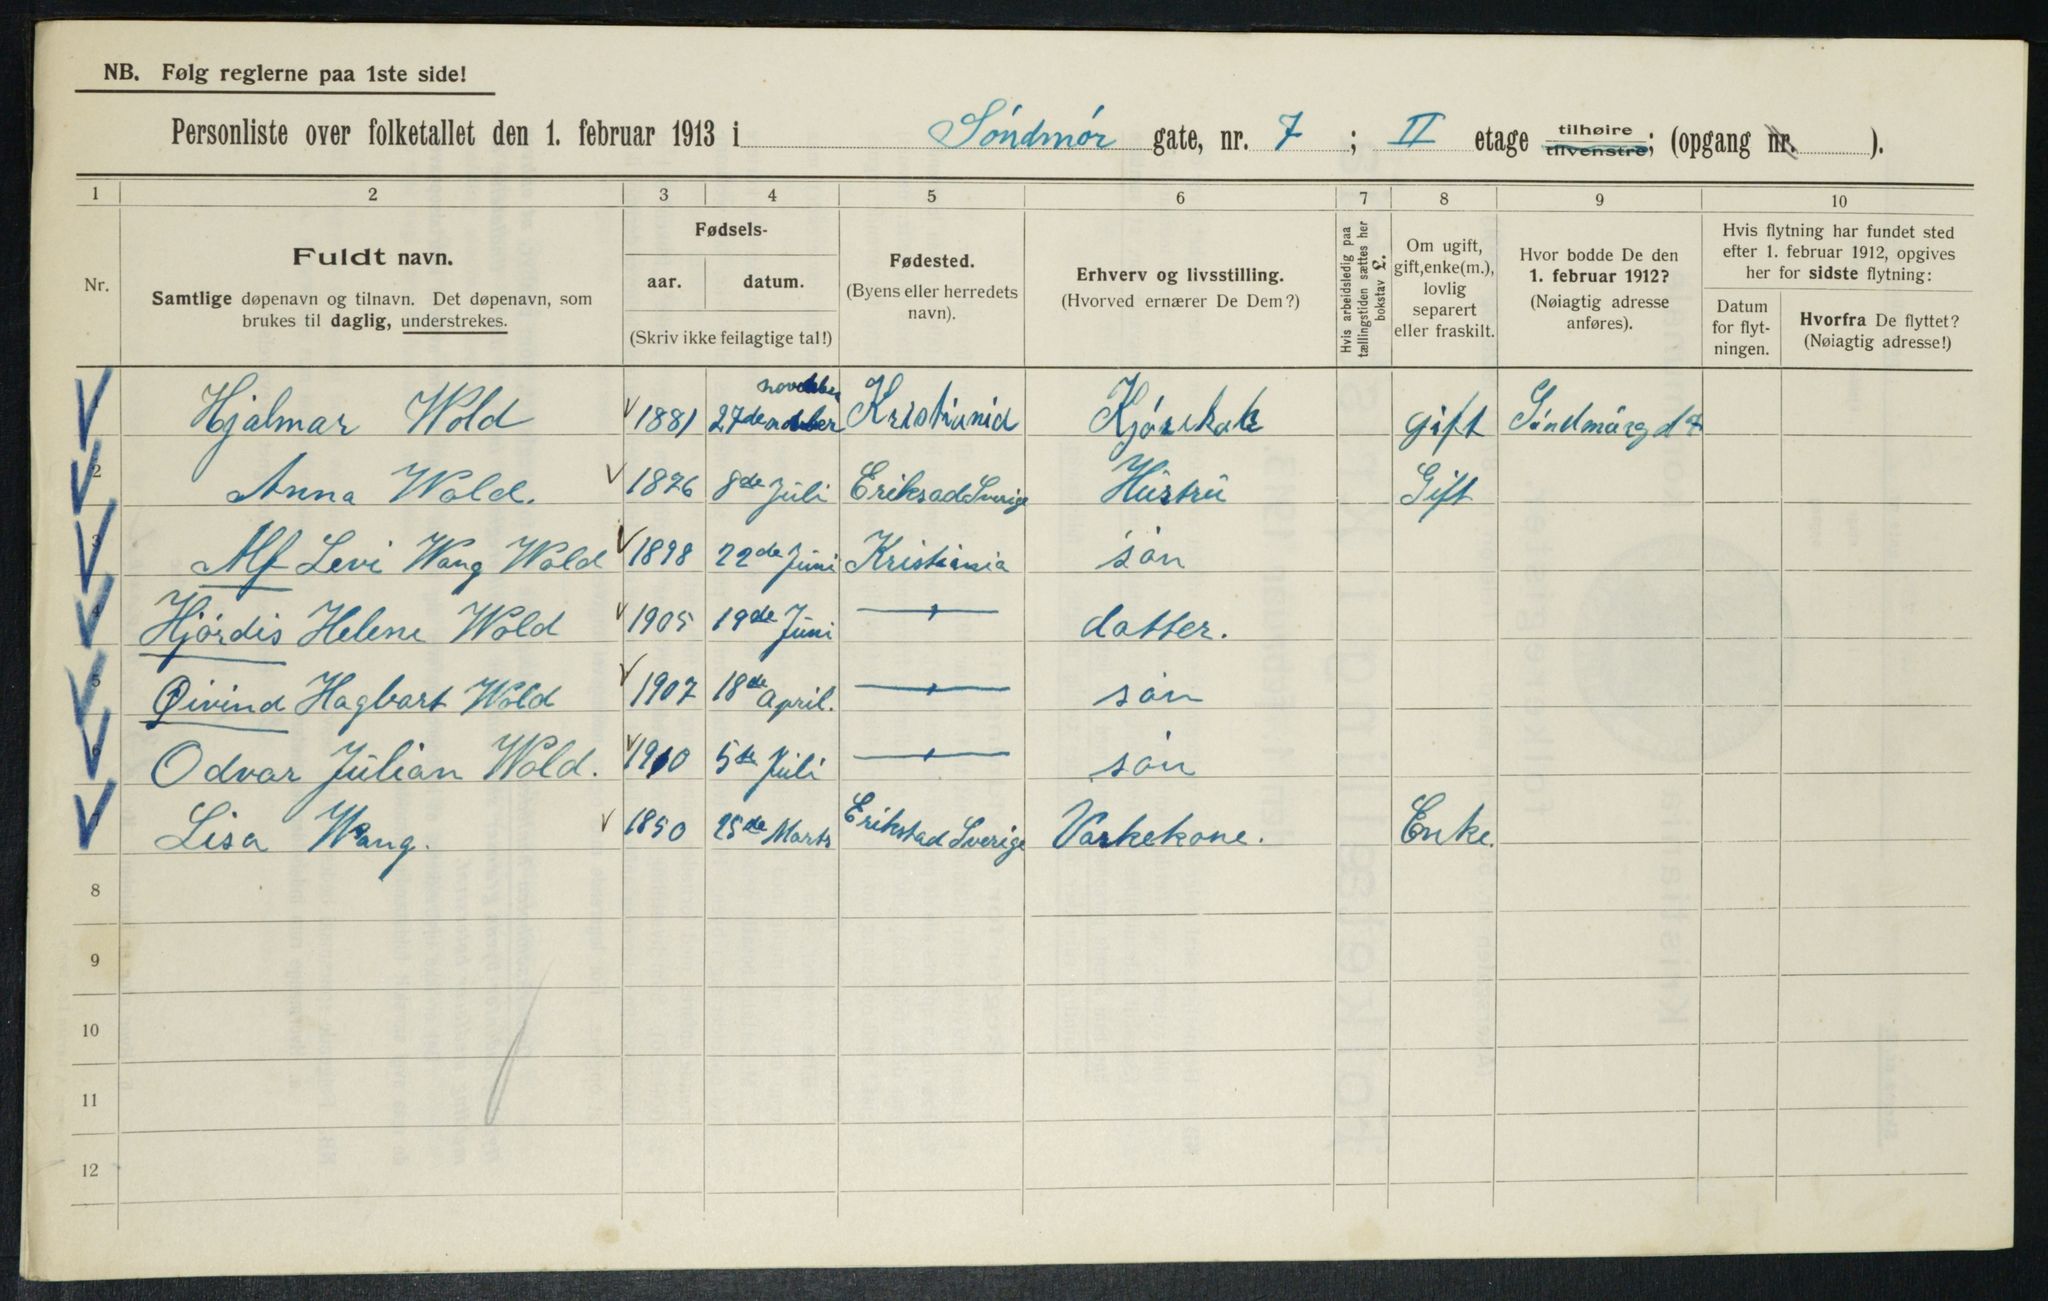 NB. Følg reglerne paa 1ste side!
Personliste over folketallet den 1. februar 1913 i Söndmör gate, nr. 7 ; II etage tilhøire tilvenstre; (opgang nr. ).
1 2 3 4 5 6 7 8 9 10
Nr.
Fuldt navn.
Samtlige døpenavn og tilnavn. Det døpenavn, som
brukes til daglig, understrekes.
Fødsels-
aar. datum.
(Skriv ikke feilagtige tal!)
Fødested.
(Byens eller herredets
navn).
Erhverv og livsstilling.
(Hvorved ernærer De Dem?)
Hvis arbeidsledig paa
tællingstiden sættes her
bokstav £.
Om ugift,
gift, enke(m.),
lovlig
separert
eller fraskilt.
Hvor bodde De den
1. februar 1912?
(Nøiagtig adresse
anføres).
Hvis flytning har fundet sted
efter 1. februar 1912, opgives
her for sidste flytning:
Datum
for flyt-
ningen.
Hvorfra De flyttet?
(Nøiagtig adresse!)
Hjalmar Wold 1881 27de november Kristiania gift
2 Anna Wold. 1876 8de Juli Eriksad Sverige Hustru Gift
3 Alf Levi Wang Wold 1898 22de Juni Kristiania sön
4 Hjördis Helene Wold 1905 19de Juni — " — datter.
5 Øivind Hagbart Wold 1907 18de April. — " — sön
6 Odvar Julian Wold. 1910 5te Juli — " — sön
Lisa Wang. 1850 25de Marts Erikstad Sverige Vaskekone. Enke.
8
9
10
11
12